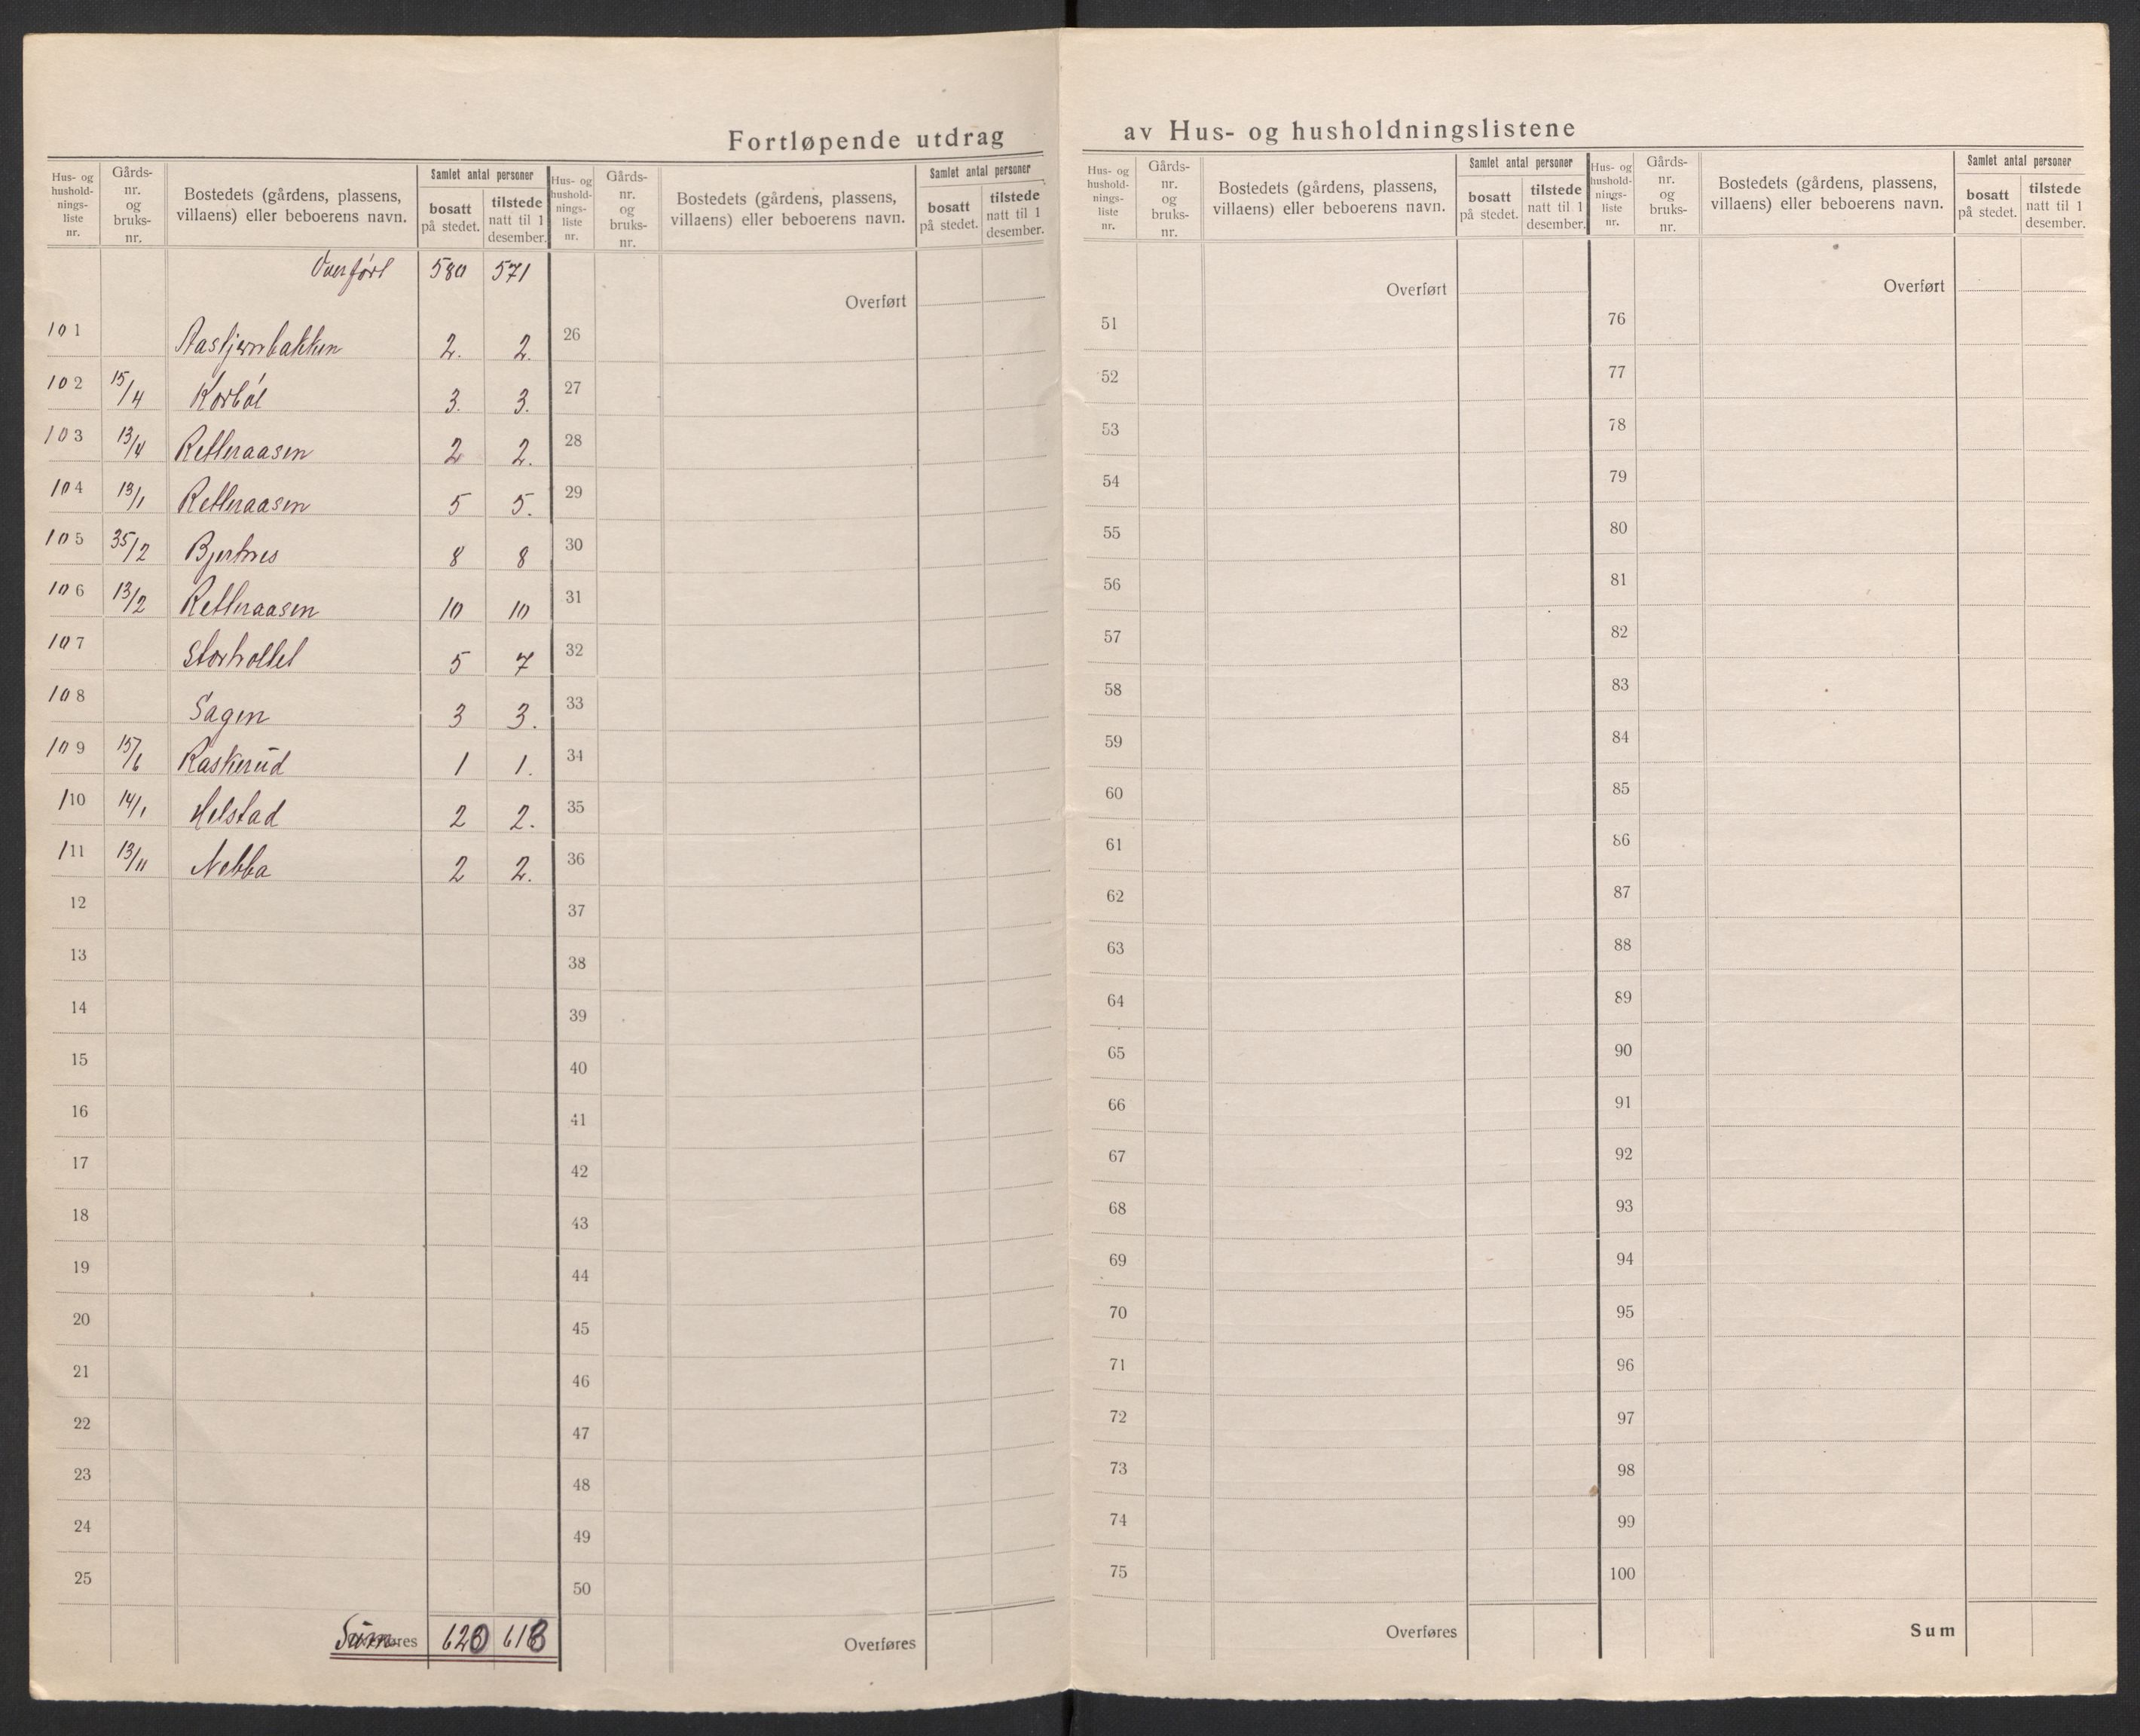 Fortløpende utdrag av Hus- og husholdningslistene
Hus- og hushold- nings- liste nr.
Gårds- nr. og bruks- nr.
Bostedets (gårdens, plassens, villaens) eller beboerens navn.
Samlet antal personer
bosatt på stedet.
tilstede natt til 1 desember.
Overført 580 571
101 2. 2.
102 15/4 Korbøl 3. 3.
103 13/4 Retteraasen 2 2.
104 13/1 Retteraasen 5 5.
105 35/2 Bjertnes 8 8
106 13/2 Retteraasen 10 10
107 5 7
108 Sagen 3 3.
109 15/6 Raskerud 1 1.
110 14/1 Helstad 2 2.
111 13/11 Nabba 2 2.
12
13
14
15
16
17
18
19
20
21
22
23
24
25
Sum 620 618
Hus- og hushold- nings- liste nr.
Gårds- nr. og bruks- nr.
Bostedets (gårdens, plassens, villaens) eller beboerens navn.
Samlet antal personer
bosatt på stedet.
tilstede natt til 1 desember.
Overført
26
27
28
29
30
31
32
33
34
35
36
37
38
39
40
41
42
43
44
45
46
47
48
49
50
Overføres
Hus- og hushold- nings- liste nr.
Gårds- nr. og bruks- nr.
Bostedets (gårdens, plassens, villaens) eller beboerens navn.
Samlet antal personer
bosatt på stedet.
tilstede natt til 1 desember.
Overført
51
52
53
54
55
56
57
58
59
60
61
62
63
64
65
66
67
68
69
70
71
72
73
74
75
Overføres
Hus- og hushold- nings- liste nr.
Gårds- nr. og bruks- nr.
Bostedets (gårdens, plassens, villaens) eller beboerens navn.
Samlet antal personer
bosatt på stedet.
tilstede natt til 1 desember.
Overført
76
77
78
79
80
81
82
83
84
85
86
87
88
89
90
91
92
93
94
95
96
97
98
99
100
Sum